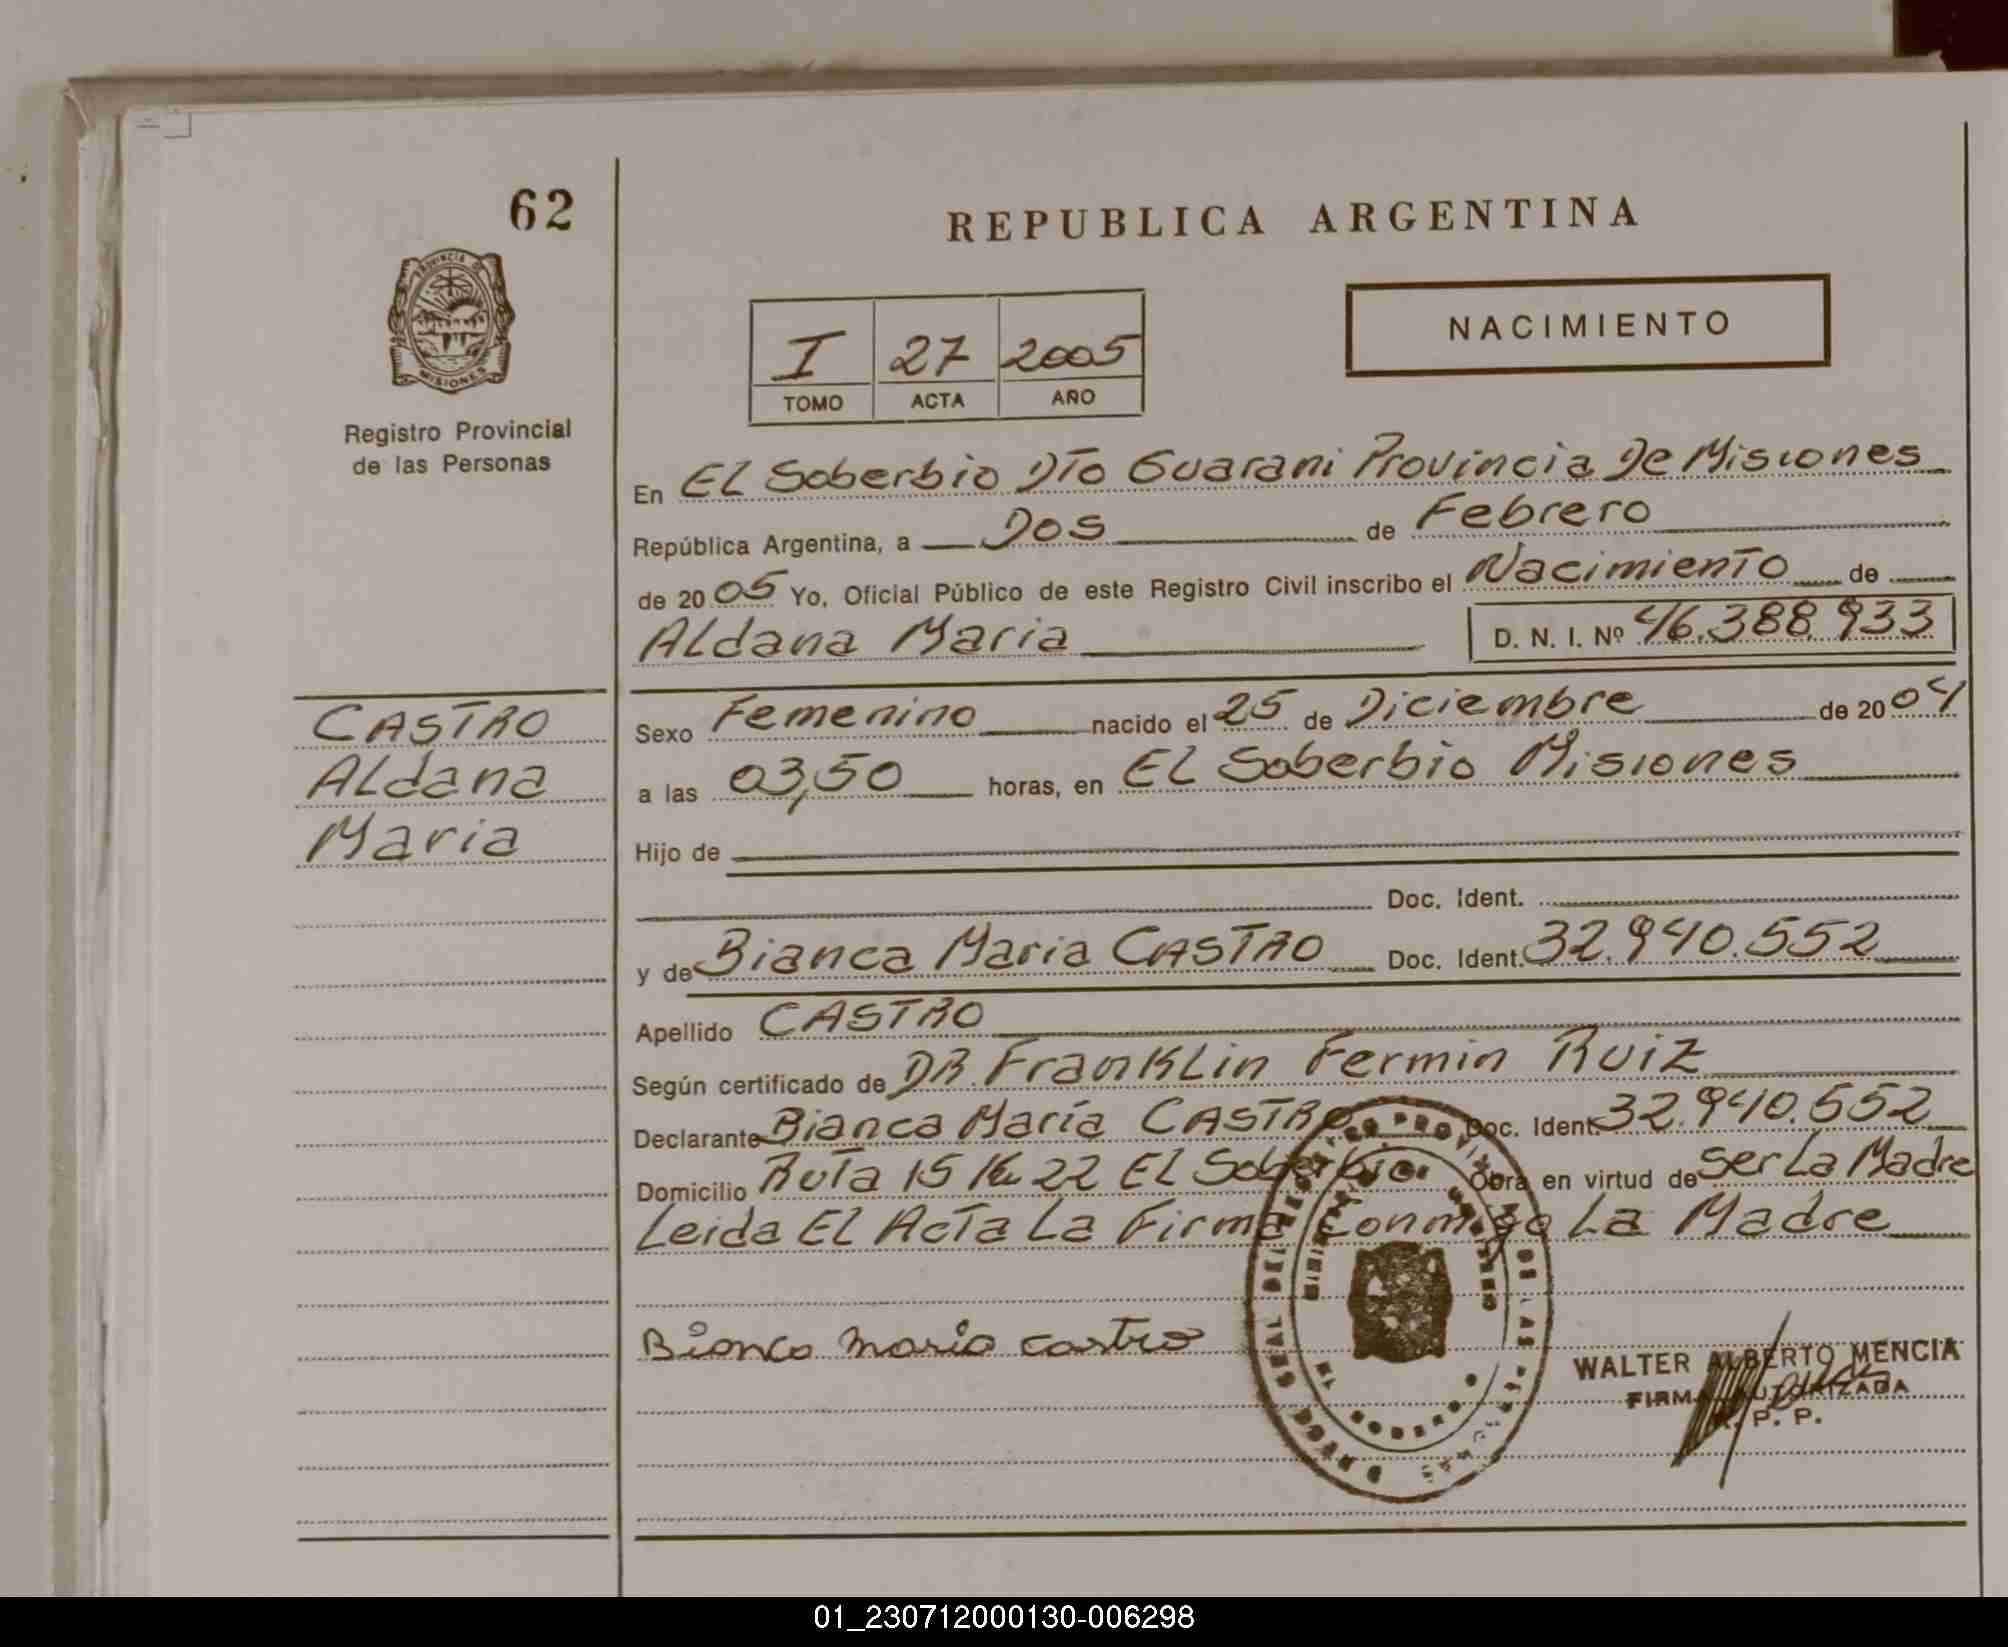 62
REPUBLICA ARGENTINA
PROVINCIA DE
MISIONES
NACIMIENTO
I 27 2005
TOMO ACTA AÑO
Registro Provincial
de las Personas
En EL Soberbio DTo Guarani Provincia De Misiones
República Argentina, a Dos de Febrero
de 2005 Yo, Oficial Público de este Registro Civil inscribo el Nacimiento de
Aldana Maria D. N. I. Nº 46.388.933
CASTRO
Aldana
Maria
Sexo Femenino nacido el 25 de Diciembre de 2004
a las 03,50 horas, en EL Soberbio Misiones
Hijo de
Doc. Ident.
y de Bianca Maria CASTRO Doc. Ident. 32.940.552
Apellido CASTRO
Según certificado de DR. Franklin Fermin Ruiz
Declarante Bianca María CASTRO Doc. Ident. 32.940.552
Domicilio Ruta 15 Km 22 EL Soberbio. Obra en virtud de ser La Madre
Leida El Acta La Firma Conmigo La Madre
Bianca maria castro
WALTER ALBERTO MENCIA
FIRMA AUTORIZADA
R. P. P.
01_230712000130-006298